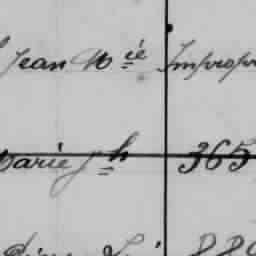 Jean M ié Impropr
Marie Jh 365